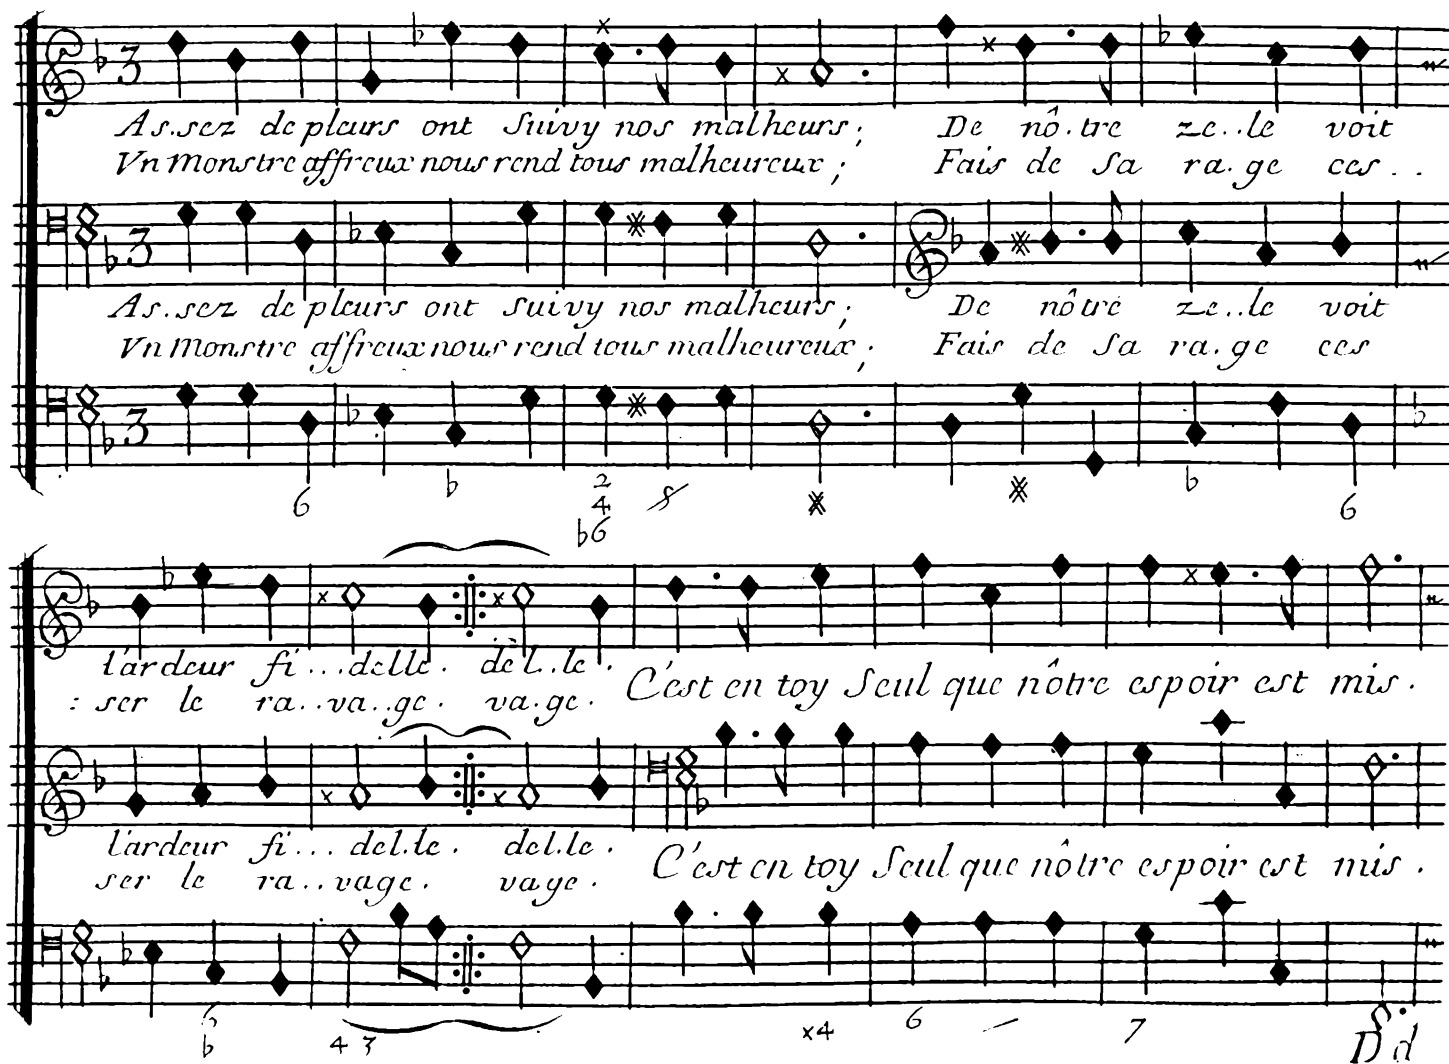 As.sez de pleurs ont suivy nos malheurs; De nô.tre ze..le voit
Vn Monstre affreux nous rend tous malheureux; Fais de sa ra.ge ces..
As.sez de pleurs ont suivy nos malheurs; De nôtre ze..le voit
Vn Monstre affreux nous rend tous malheureux; Fais de sa ra.ge ces
6 b 2 b 6
4
b6
l'ardeur fi...delle. del..le. C'est en toy seul que nôtre espoir est mis.
: ser le ra..va..ge. va.ge.
l'ardeur fi...del.le. del.le. C'est en toy seul que nôtre espoir est mis.
ser le ra..vage. vage.
6 4 3 x4 6 7
b
D d